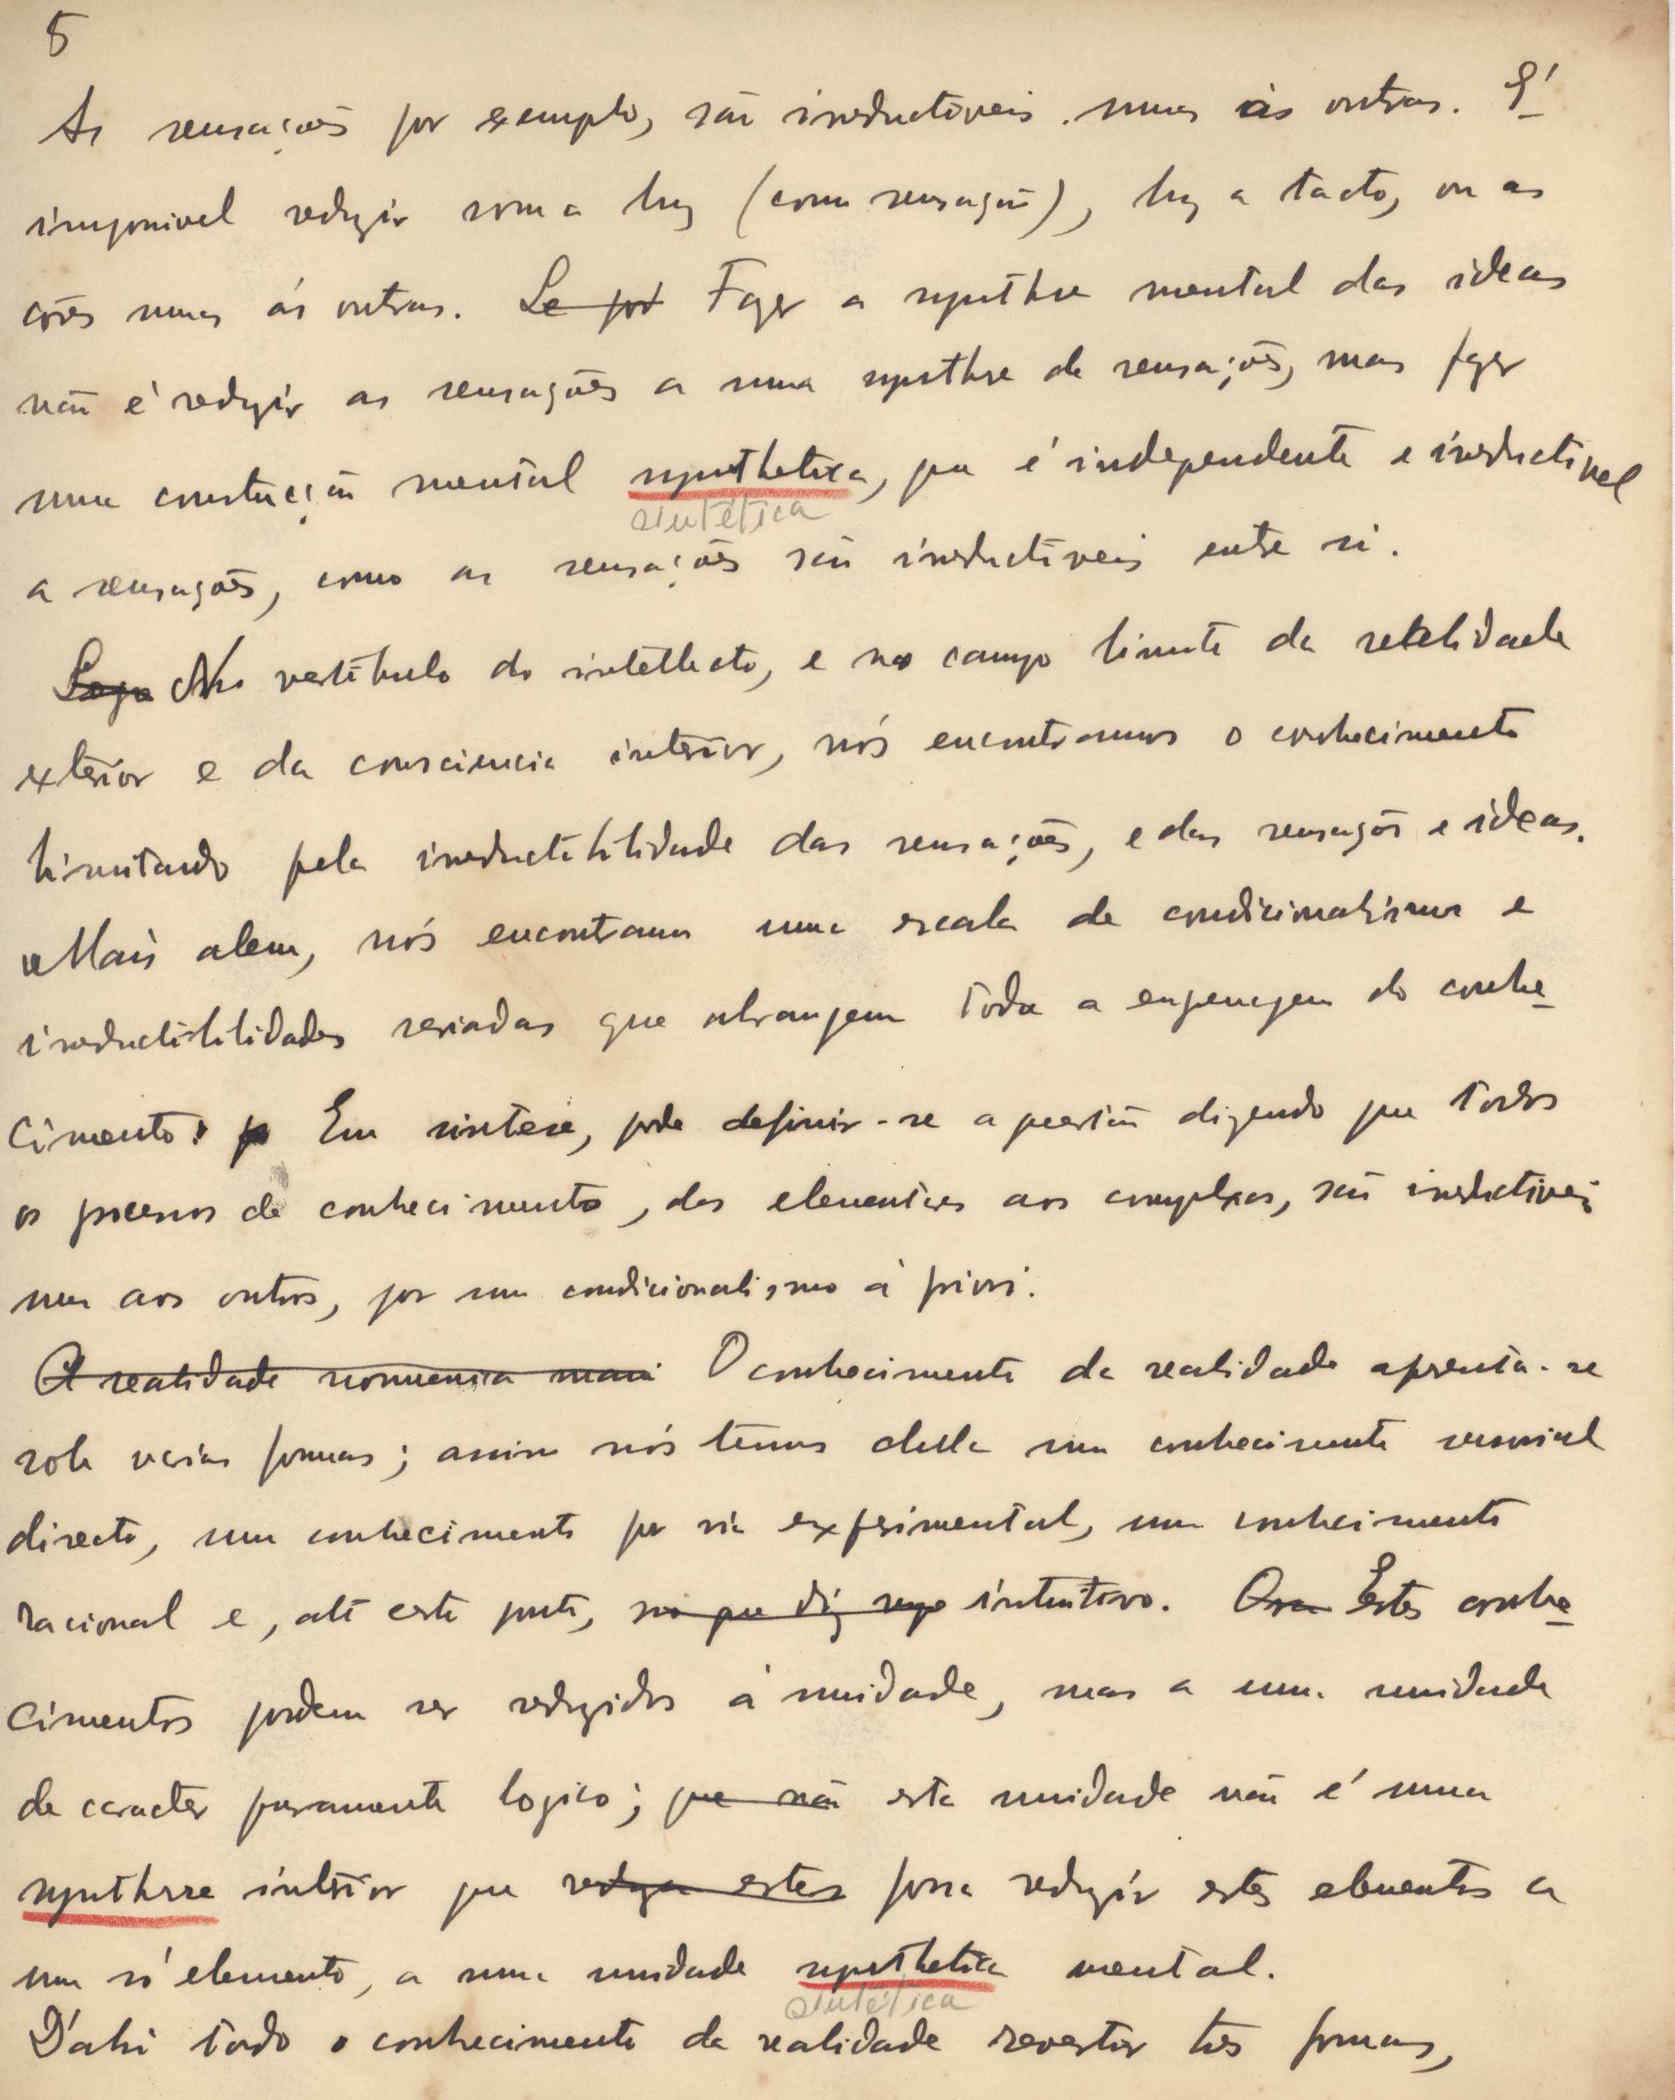 5
As sensações por exemplo, são irreductiveis umas ás outras. E'
impossivel reduzir som a luz (como sensação), luz a tacto, ou as
côres umas ás outras. Se por Fazer a synthese mental das ideas
não é reduzir as sensações a uma synthese de sensações, mas fazer
uma construcção mental synthetica, que é independente e irreductivel
sintética
a sensações, como as sensações são irreductiveis entre si.
Logo No vestibulo do intellecto, e no campo limite da realidade
exterior e da consciencia interior, nós encontramos o conhecimento
limitando pela irreductibilidade das sensações, e das sensações e ideas.
Mais alem, nós encontramos uma escala de condicionalismos e
irreductibilidades seriadas que abrangem toda a engenagem do conhe-
cimento. Em sintese, pode definir-se a questão dizendo que todos
os processos de conhecimento, dos elementares aos complexos, são irreductiveis
uns aos outros, por um condicionalismo á priori.
A realidade mais O conhecimento da realidade apresenta-se
sob varias formas; assim nós temos della um conhecimento sensorial
directo, um conhecimento por via experimental, um conhecimento
racional e, até certo ponto, no que diz intuitivo. Ora Estes conhe-
cimentos podem ser reduzidos á unidade, mas a uma unidade
de caracter puramente logico; que não esta unidade não é uma
synthese interior que reduza estes possa reduzir estes elementos a
um só elemento, a uma unidade synthetica mental.
sintética
D'ahi todo o conhecimento da realidade revestir tres formas,